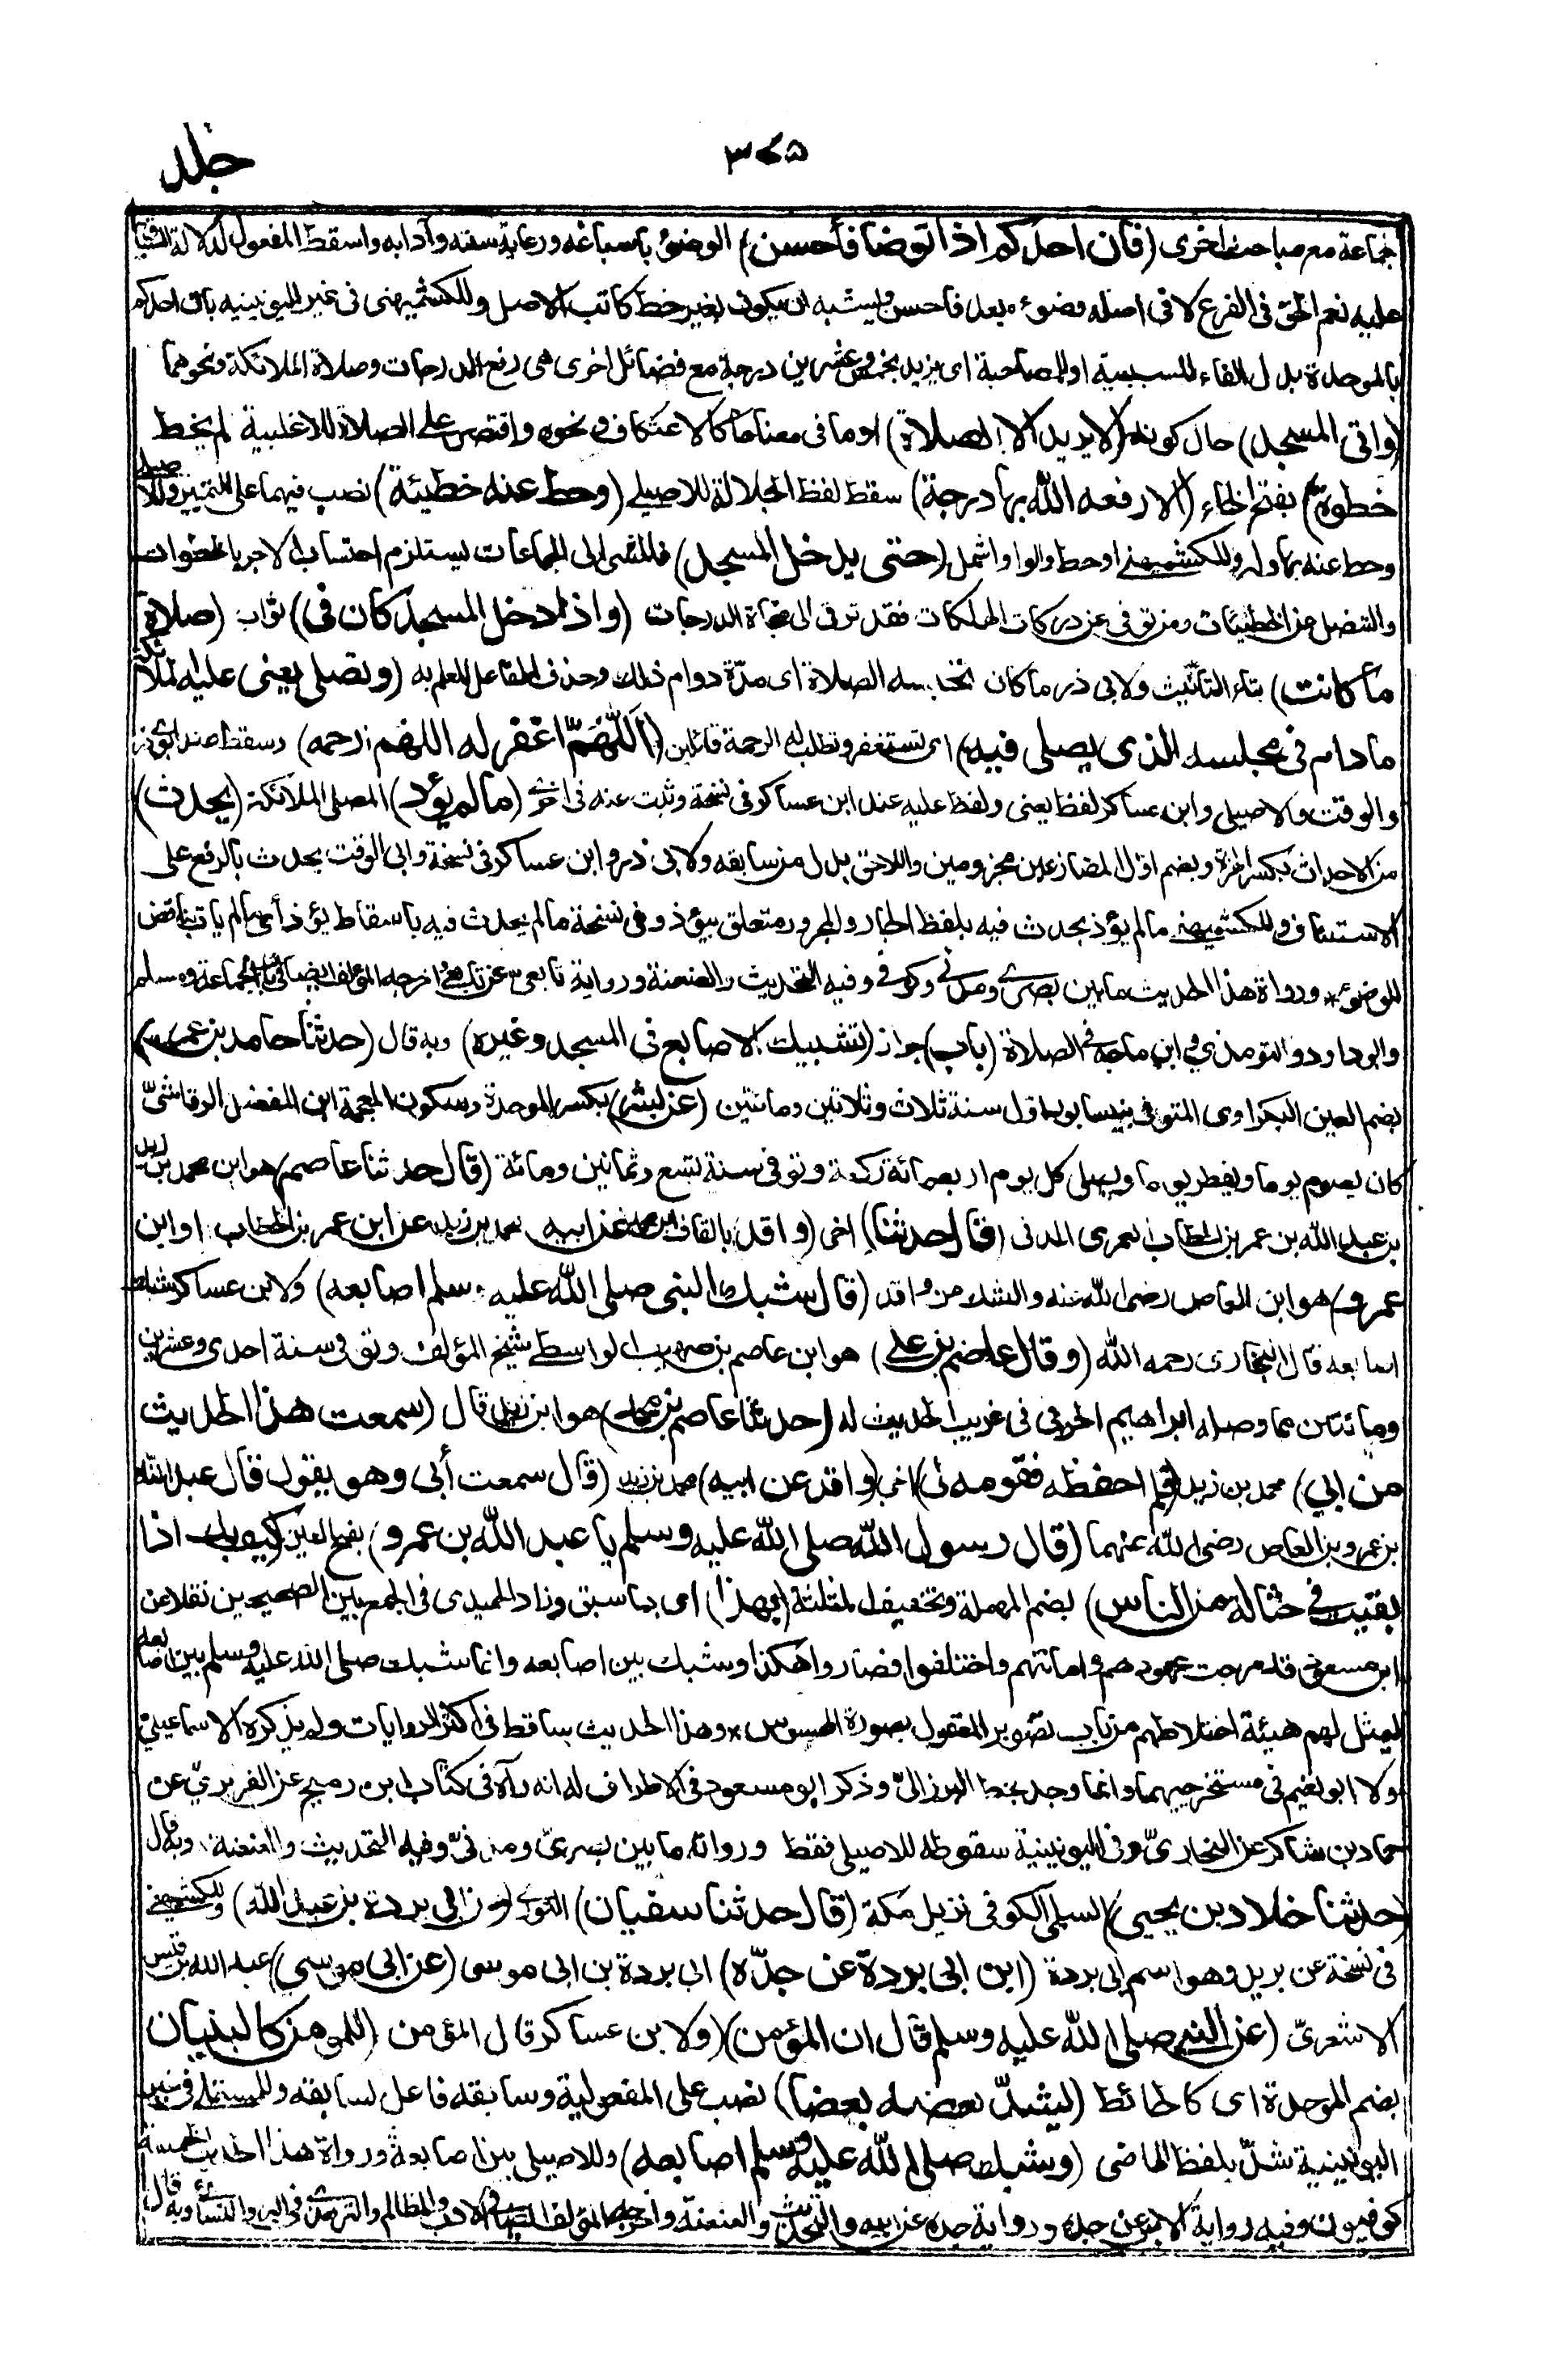 جلد
٣٧٥
جماعة مع مباحث اخرى (فان احدكم اذا توضا فأحسن) الوضوء باسباغه ورعاية سننه وآدابه واسقط المفعول لدلالة السياق
عليه نعم الحق فى الفرع لا فى اصله وضوءه بعد فاحسن ويشبه ان يكون بغير خط كاتب الاصل وللكشميهنى فى غير اليونينية بان احدكم
بالموحدة بدل الفاء للسببية او للمصاحبة اى يزيد بخمس وعشرين درجة مع فضائل اخرى هى رفع الدرجات وصلاة الملائكة ونحوهما
(واتى المسجد) حال كونه (لا يريد الا الصلاة) او ما فى معناها كالاعتكاف ونحوه واقتصر على الصلاة للاغلبية لم يخط
خطوة) بفتح الخاء (الا رفعه الله بها درجة) سقط لفظ الجلالة للاصيلى (وحط عنه خطيئة) نصب فيهما على التمييز وللاصيلى
وحط عنه بها وله وللكشميهنى او حط والواو اشمل (حتى يدخل المسجد) فالمشى الى الجماعات يستلزم احتساب الاجر بالخطوات
والتنصل من الخطيئات ومن توقى عن دركات الهلكات فقد ترقى الى منجاة الدرجات (واذا دخل المسجد كان فى) ثواب (صلاة
ما كانت) بتاء التأنيث ولابى ذر ما كان تحبسه الصلاة اى مدّة دوام ذلك وحذف الفاعل للعلم به (وتصلى يعنى عليه الملائكة
ما دام فى مجلسه الذى يصلى فيه) اى تستغفر وتطلب له الرحمة قائلين (اللّٰهُمَّ اغفر له اللهم ارحمه) وسقط عند ابوى ذر
والوقت والاصيلى وابن عساكر لفظ يعنى ولفظ عليه عند ابن عساكر فى نسخة وثبت عنه فى اخرى (ما لم يؤذ) المصلى الملائكة (يحدث)
من الاحداث بكسر الهمزة وبضم اوّل المضارعين مجزومين واللاحق بدل من سابقه ولابى ذر وابن عساكر فى نسخة وابى الوقت يحدث بالرفع على
الاستئناف وللكشميهنى ما لم يؤذ يحدث فيه بلفظ الجار والمجرور متعلق بيؤذ وفى نسخة ما لم يحدث فيه باسقاط يؤذ أى ما لم يات بناقض
للوضوء * ورواة هذا الحديث ما بين بصرى ومدنى وكوفى وفيه التحديث والعنعنة ورواية تابعى عن تابعى واخرجه المؤلف ايضا فى باب الجماعة ومسلم
وابو داود والترمذى وابن ماجه فى الصلاة (باب) جواز (تشبيك الاصابع فى المسجد وغيره) وبه قال (حدثنا حامد بن عمر)
بضم العين البكراوى المتوفى بنيسابور اول سنة ثلاث وثلاثين ومائتين (عن بشر) بكسر الموحدة وسكون المعجمة ابن المفضل الرقاشىّ
كان يصوم يوما ويفطر يوما ويصلى كل يوم اربعمائة ركعة وتوفى سنة تسع وثمانين ومائة (قال حدثنا عاصم) هو ابن محمد بن زيد
بن عبد الله بن عمر بن الخطاب العمرى المدنى (قال حدثنا) اخى (واقد) بالقاف ابن محمد (عن ابيه) محمد بن زيد (عن ابن عمر) بن الخطاب (او ابن
عمرو) هو ابن العاص رضى الله عنه والشك من واقد (قال شبك النبى صلى الله عليه وسلم اصابعه) ولابن عساكر شبك
اصابعه قال البخارى رحمه الله (وقال عاصم بن على) هو ابن عاصم بن صهيب الواسطى شيخ المؤلف وتوفى سنة احدى وعشرين
ومائتين مما وصله ابراهيم الحربى فى غريب الحديث له (حدثنا عاصم بن محمد) هو ابن زيد قال (سمعت هذا الحديث
من ابي) محمد بن زيد (فلم احفظه فقومه لى) اخى (واقد عن ابيه) محمد بن زيد (قال سمعت أبى وهو يقول قال عبد الله
بن عمرو بن العاص رضى الله عنهما (قال رسول الله صلى الله عليه وسلم يا عبد الله بن عمرو) بفتح العين (كيف بك اذا
بقيت فى حثالة من الناس) بضم المهملة وتخفيف المثلثة (بهذا) اى بما سبق وزاد الحميدى فى الجمع بين الصحيحين نقلا عن
ابى مسعود قد مرجت عهودهم واماناتهم واختلفوا فصاروا هكذا وشبك بين اصابعه وانما شبك صلى الله عليه وسلم بين اصابعه
ليمثل لهم هيئة اختلاطهم من باب تصوير المعقول بصورة المحسوس * وهذا الحديث ساقط فى اكثر الروايات ولم يذكره الاسماعيلى
ولا ابو نعيم فى مستخرجيهما وانما وجد بخط البرزالىّ وذكر ابو مسعود فى الاطراف له انه رآه فى كتاب ابن رميح عن الفربرىّ عن
حماد بن شاكر عن البخارىّ وفى اليونينية سقوطه للاصيلى فقط ورواته ما بين بصرىّ ومدنىّ وفيه التحديث والعنعنة وبه قال
(حدثنا خلاد بن يحيى) السلمى الكوفى نزيل مكة (قال حدثنا سفيان) الثورى (عن ابى بردة بن عبد الله) وللكشميهنى
فى نسخة عن بريد وهو اسم ابى بردة (ابن ابى بردة عن جدّه) ابى بردة بن ابى موسى (عن ابى موسى) عبد الله بن قيس
الاشعرىّ (عن النبى صلى الله عليه وسلم قال ان المؤمن) (ولابن عساكر قال المؤمن (للمؤمن كالبنيان
بضم الموحدة اى كالحائط (ليشدّ بعضه بعضا) نصب على المفعولية وسابقه فاعل لسابقه وللمستملى فى غير
اليونينية شدّ بلفظ الماضى (وشبك صلى الله عليه وسلم اصابعه) وللاصيلى بين اصابعه ورواة هذا الحديث خمسة
كوفيون وفيه رواية الابن عن جده ورواية جده عن ابيه والتحديث والعنعنة واخرجه المؤلف ايضا فى الادب والمظالم والترمذى فى البر والنسائى وبه قال